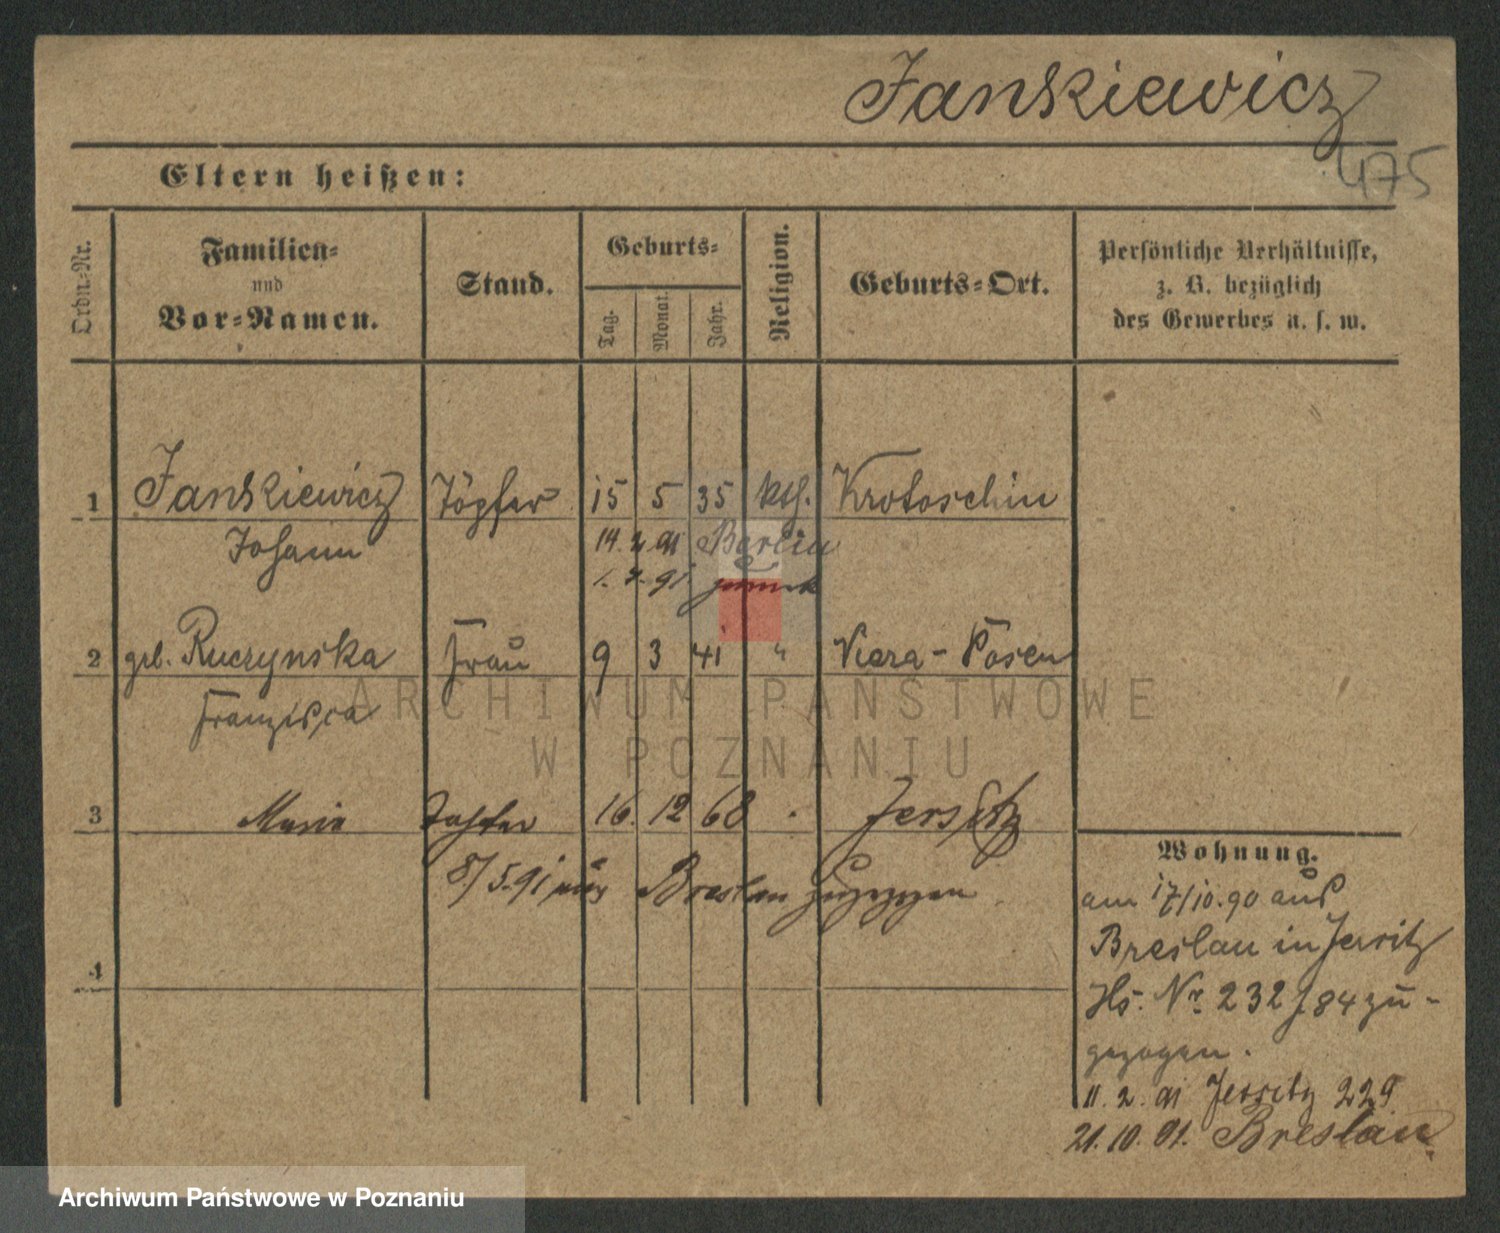 Jankiewicz
475
Eltern heißen:
Ordn.-Nr.
Familien-
und
Vor-Namen.
Stand.
Geburts-
Tag.
Monat.
Jahr.
Religion.
Geburts-Ort.
Persönliche Verhältnisse,
z. B. bezüglich
des Gewerbes u. s. w.
1 Jankiewicz Töpfer 15 5 35 kth. Krotoschin
Johann 14. 2. 91 Berlin
1. 7. 91 zurück
2 geb. Ruczynska Frau 9 3 41 " Posen
Franziska
3 Maria Tochter 16. 12 68 Jersitz
8/5.91 aus Breslau zugezogen
4
Wohnung.
am 17/10.90 aus
Breslau in Jersitz
Hs. Nr. 232 zu-
gezogen.
11. 2. 91 Jersitz 229
21. 10. 91. Breslau
ARCHIWUM PAŃSTWOWE
W POZNANIU
Archiwum Państwowe w Poznaniu